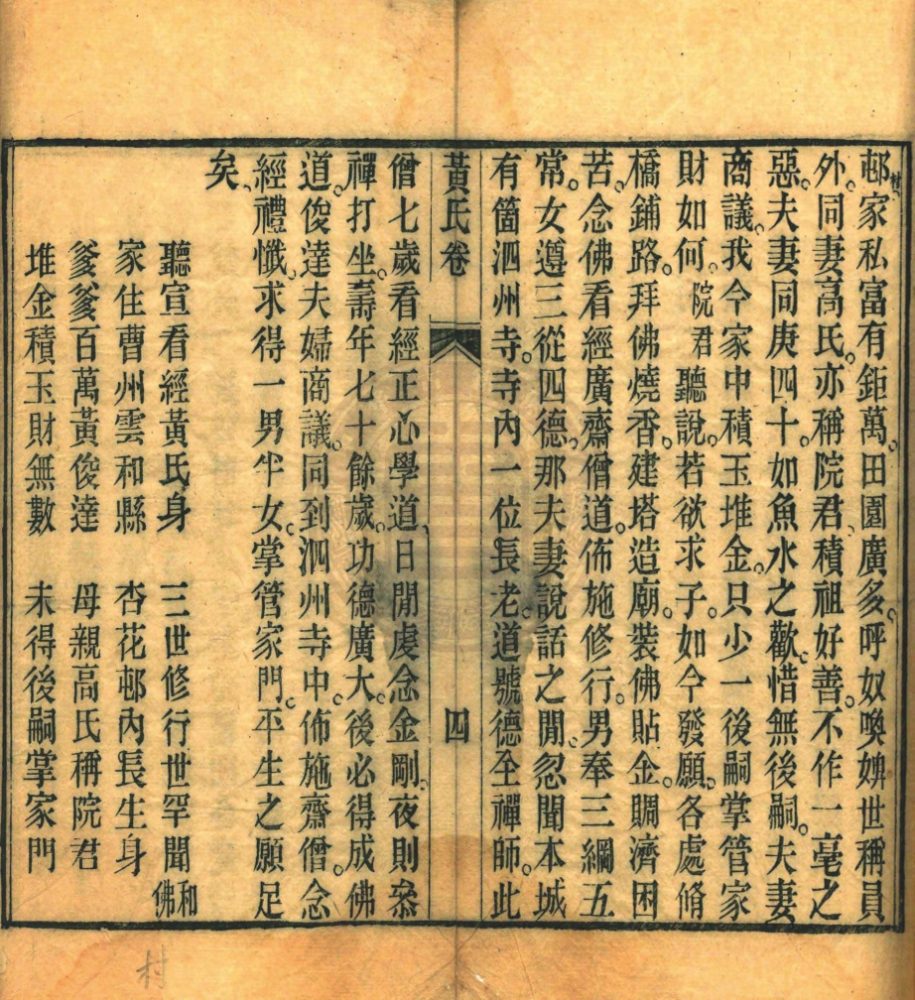 邨家私富有鉅萬。田園廣多。呼奴喚婢世稱員
外。同妻高氏。亦稱院君。積祖好善。不作一毫之
惡。夫妻同庚四十。如魚水之歡。惜無後嗣。夫妻
商議。我今家中積玉堆金。只少一後嗣掌管家
財如何。院君聽說。若欲求子。如今發願。各處脩
橋鋪路。拜佛燒香。建塔造廟。裝佛貼金。賙濟困
苦。念佛看經廣齋僧道。佈施修行。男奉三綱五
常。女遵三從四德。那夫妻說話之閒。忽聞本城
有箇泗州寺。寺內一位長老。道號德全禪師。此
黃氏卷 四
僧七歲看經正心學道。日閒虔念金剛。夜則叅
禪打坐。壽年七十餘歲。功德廣大。後必得成佛
道。俊達夫婦商議。同到泗州寺中。佈施齋僧。念
經禮懺。求得一男半女。掌管家門。平生之願足
矣。
聽宣看經黃氏身 三世修行世罕聞 和佛
家住曹州雲和縣 杏花邨內長生身
爹爹百萬黃俊達 母親高氏稱院君
堆金積玉財無數 未得後嗣掌家門
村